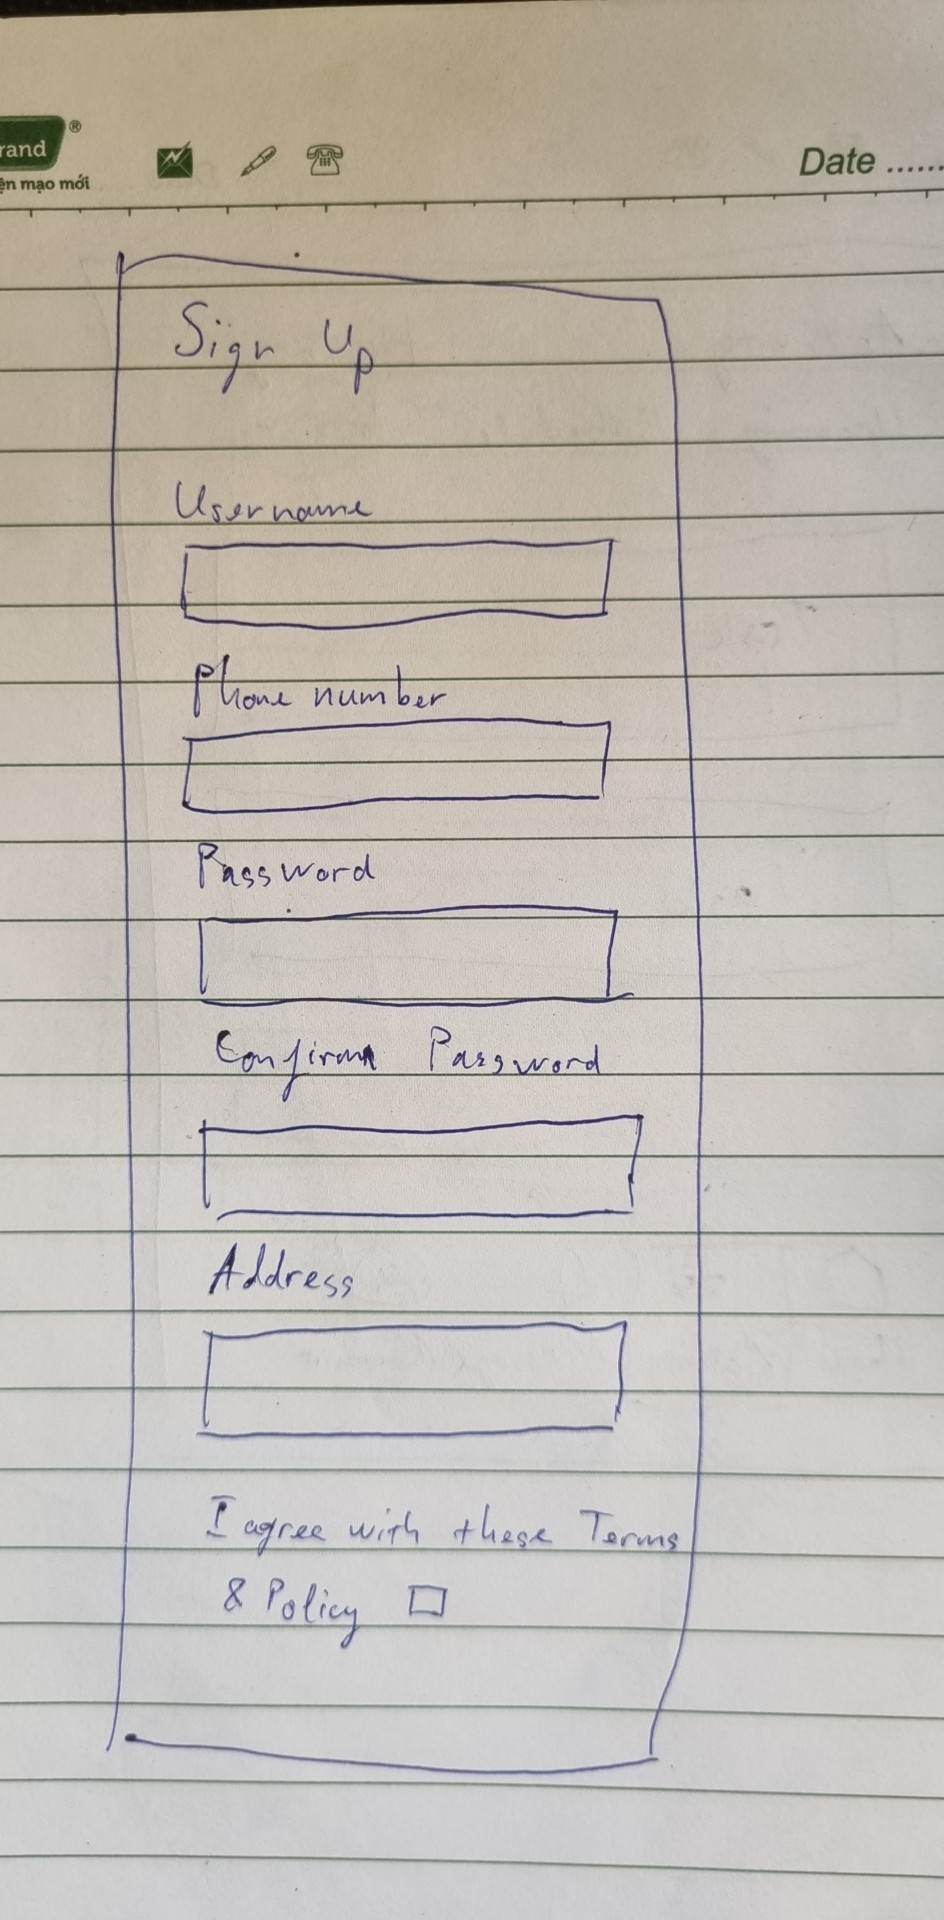 rand ®
ện mạo mới
Date ......
Sign Up
Username
Phone number
Password
Confirm Password
Address
I agree with these Terms
& Policy